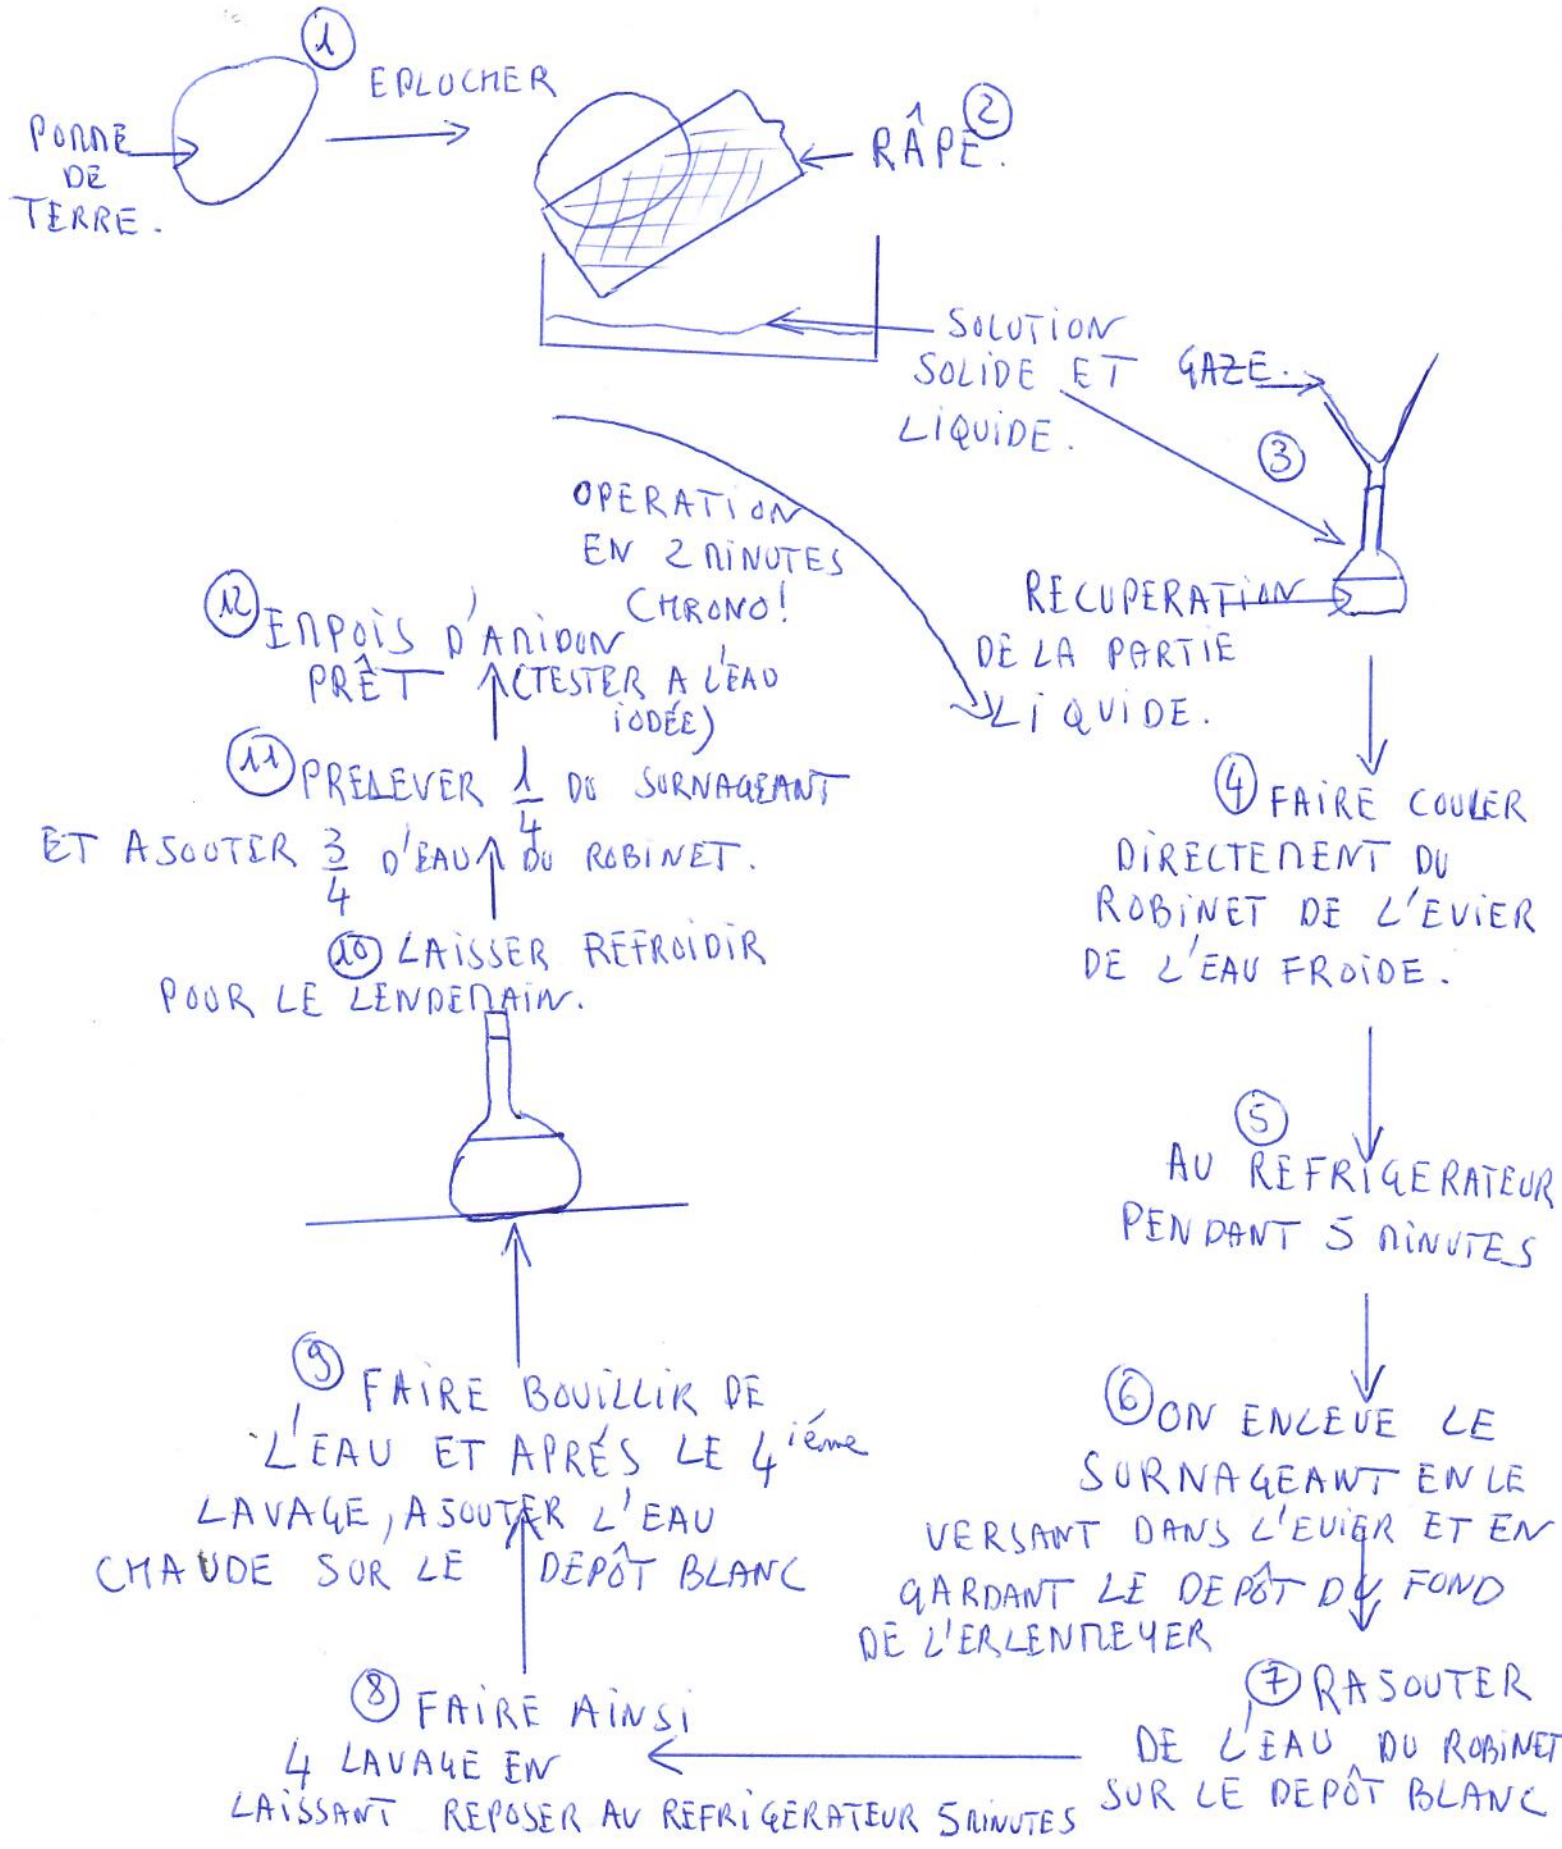 1
EPLUCHER
POMME
DE
TERRE.
2
RÂPE.
SOLUTION
SOLIDE ET
LIQUIDE.
GAZE.
3
OPERATION
EN 2 MINUTES
CHRONO!
RECUPERATION
DE LA PARTIE
LIQUIDE.
4 FAIRE COULER
DIRECTEMENT DU
ROBINET DE L'EVIER
DE L'EAU FROIDE.
5
AU REFRIGERATEUR
PENDANT 5 MINUTES
6 ON ENLEVE LE
SURNAGEANT EN LE
VERSANT DANS L'EVIER ET EN
GARDANT LE DEPÔT DU FOND
DE L'ERLENMEYER
7 RAJOUTER
DE L'EAU DU ROBINET
SUR LE DEPÔT BLANC
8 FAIRE AINSI
4 LAVAGE EN
LAISSANT REPOSER AU REFRIGERATEUR 5 MINUTES
9 FAIRE BOUILLIR DE
L'EAU ET APRÉS LE 4iéme
LAVAGE, AJOUTER L'EAU
CHAUDE SUR LE DEPÔT BLANC
10 LAISSER REFROIDIR
POUR LE LENDEMAIN.
11 PRELEVER 1/4 DU SURNAGEANT
ET AJOUTER 3/4 D'EAU DU ROBINET.
12 EMPOIS D'AMIDON
PRÊT (TESTER A L'EAU
IODÉE)